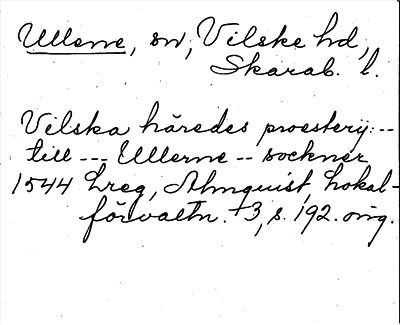 Ullerne, sn, Vilske hd,
Skarab. l.
Vilska häredes proesterij --
till --- Ullerne -- sockner
1544 Lreg, Almquist, Lokal-
förvaltn. +3, s. 192. orig.